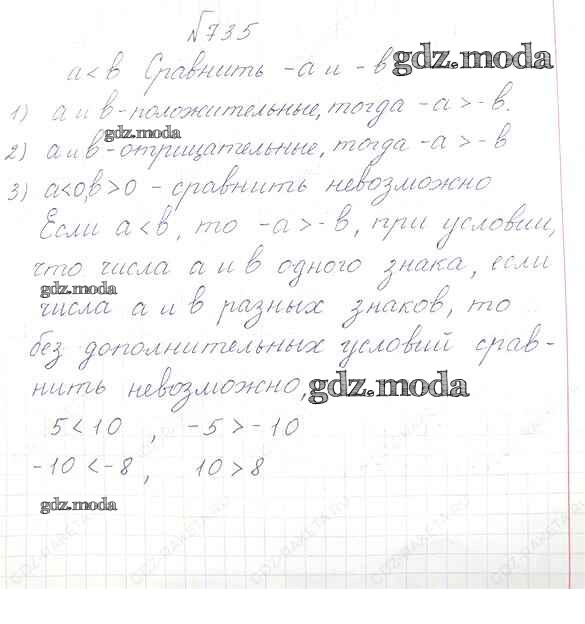 №735
a < b Сравнить -a и -b gdz.moda
1) a и b - положительные, тогда -a > -b.
gdz.moda
2) a и b - отрицательные, тогда -a > -b
3) a<0, b>0 - сравнить невозможно
Если a < b, то -a > -b, при условии,
что числа a и b одного знака, если
gdz.moda
числа a и b разных знаков, то
без дополнительных условий срав-
нить невозможно, gdz.moda
5 < 10 , -5 > -10
-10 < -8 , 10 > 8
gdz.moda